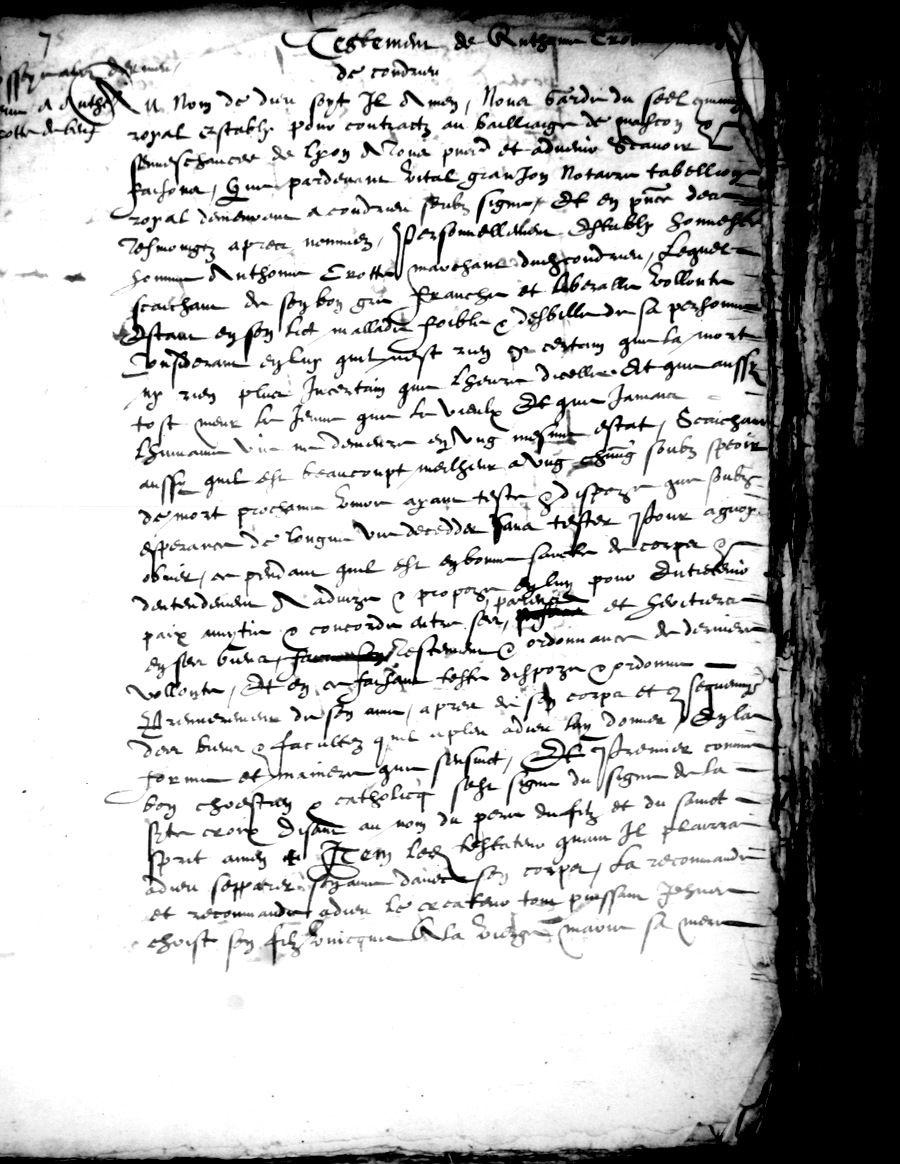 7
Testement de Anthoine Crotte
de condrieu
Au Nom de dieu soyt Il Amen, Nous Garde du seel commung
royal estably pour contractz au bailliaige de mascon &
senneschaucee de lyon A Tous pntz et advenir Scavoir
faisons, Que pardevant vital granjon Notaire tabellion
royal demeurant a condrieu soubz signe, Et en pnce des
Tesmoingz apres nommez, Personnellement Estably honneste
homme Anthoine Crotte marchant dudict condrieu, Lequel
scaichant de son bon gre franche et liberalle vollonte
Estant en son lict mallade foible & desbille de sa personne
Considerant en luy quil nest rien si certain que la mort
ny rien plus Incertain que Lheure dicelle Et que aussy
tost meur le Jeune que le vieulx Et que Jamais
Lhumaine vie ne demeure en Ung mesme estat, Scaichant
aussy quil est beaucoupt meilheur a Ung chung soubz spoir
de mort prochaine vivre ayant teste & dispoze que soubz
esperance de longue vie decedder sans tester Pour a quoy
obvier, ce pendant quil est en bonne sancte de corps &
dentendement A advize & propoze en luy pour Entretenir
paix amytie & concorde entre ses, parens et heritiers
en ses biens, Testement & ordonnance de derniere
vollonte, Et en ce faisant teste dispoze & ordonne
Premierement de son ame, apres de son corps et consequemment
des biens & facultez quil a pleu adieu luy donner En la
forme et maniere que sensuict, Et Premier comme
bon chrestien & catholicq sest signe du signe de la
ste croix Disant au nom du pere du filz et du sainct
sprit amen Item led testateur quant Il plairra
adieu sepparer son ame davec son corps, La recommande
et recommande adieu le createur tout puissant Jehsus
christ son filz unicque A la vierge marie sa mere